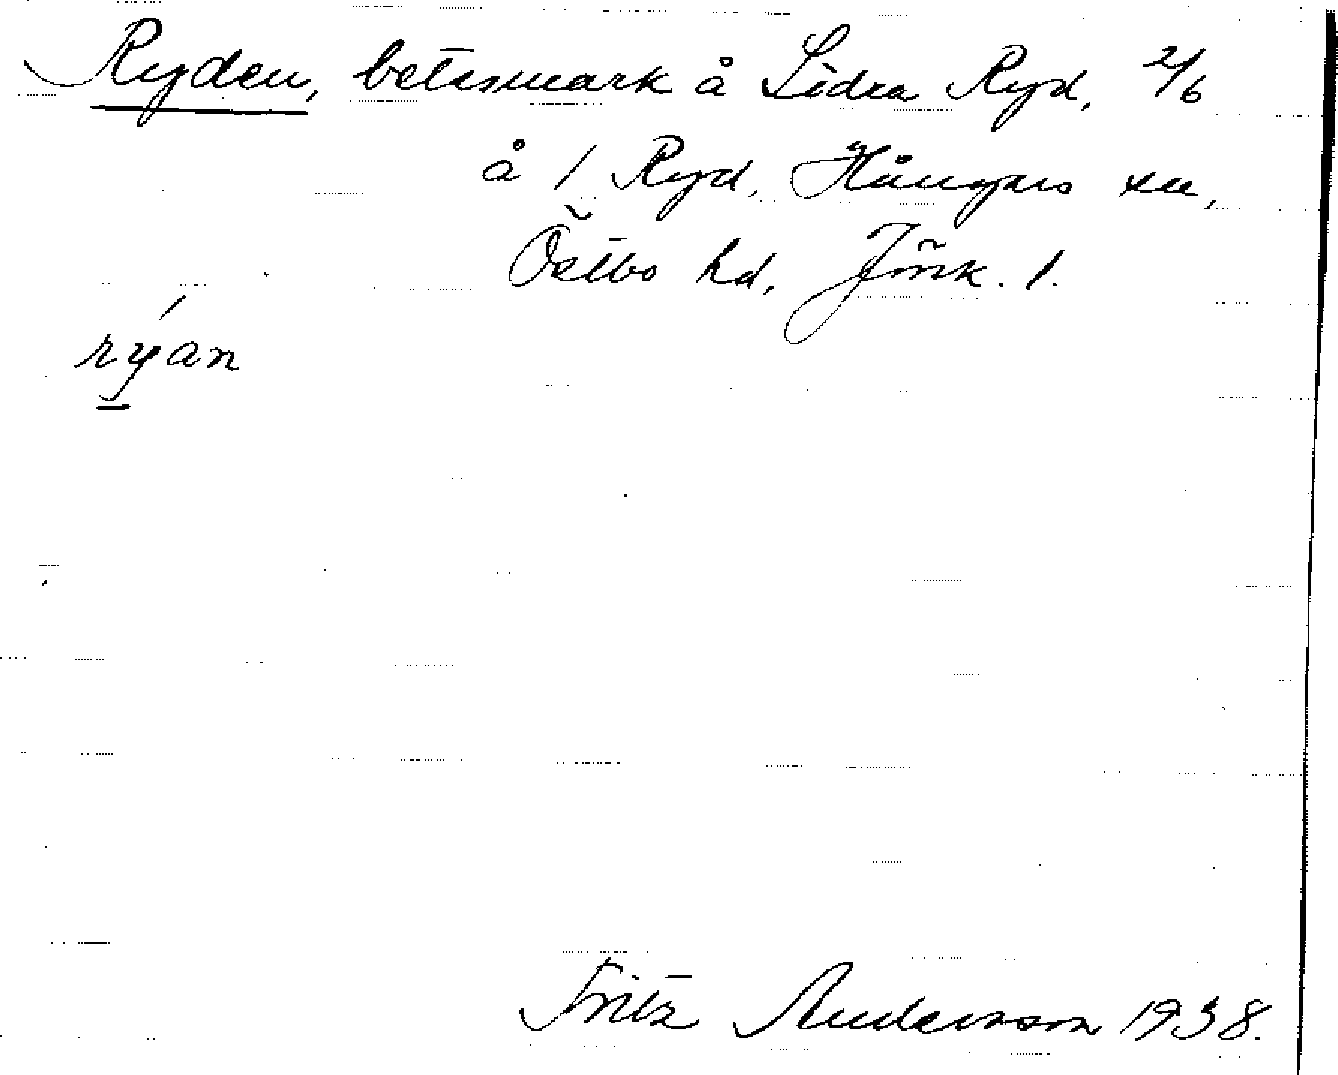 Ryden, betesmark å Södra Ryd, 2/6
å 1 Ryd, Hångers sn,
Östbo hd, Jönk. l.
rýan
Fritz Andersson 1938.